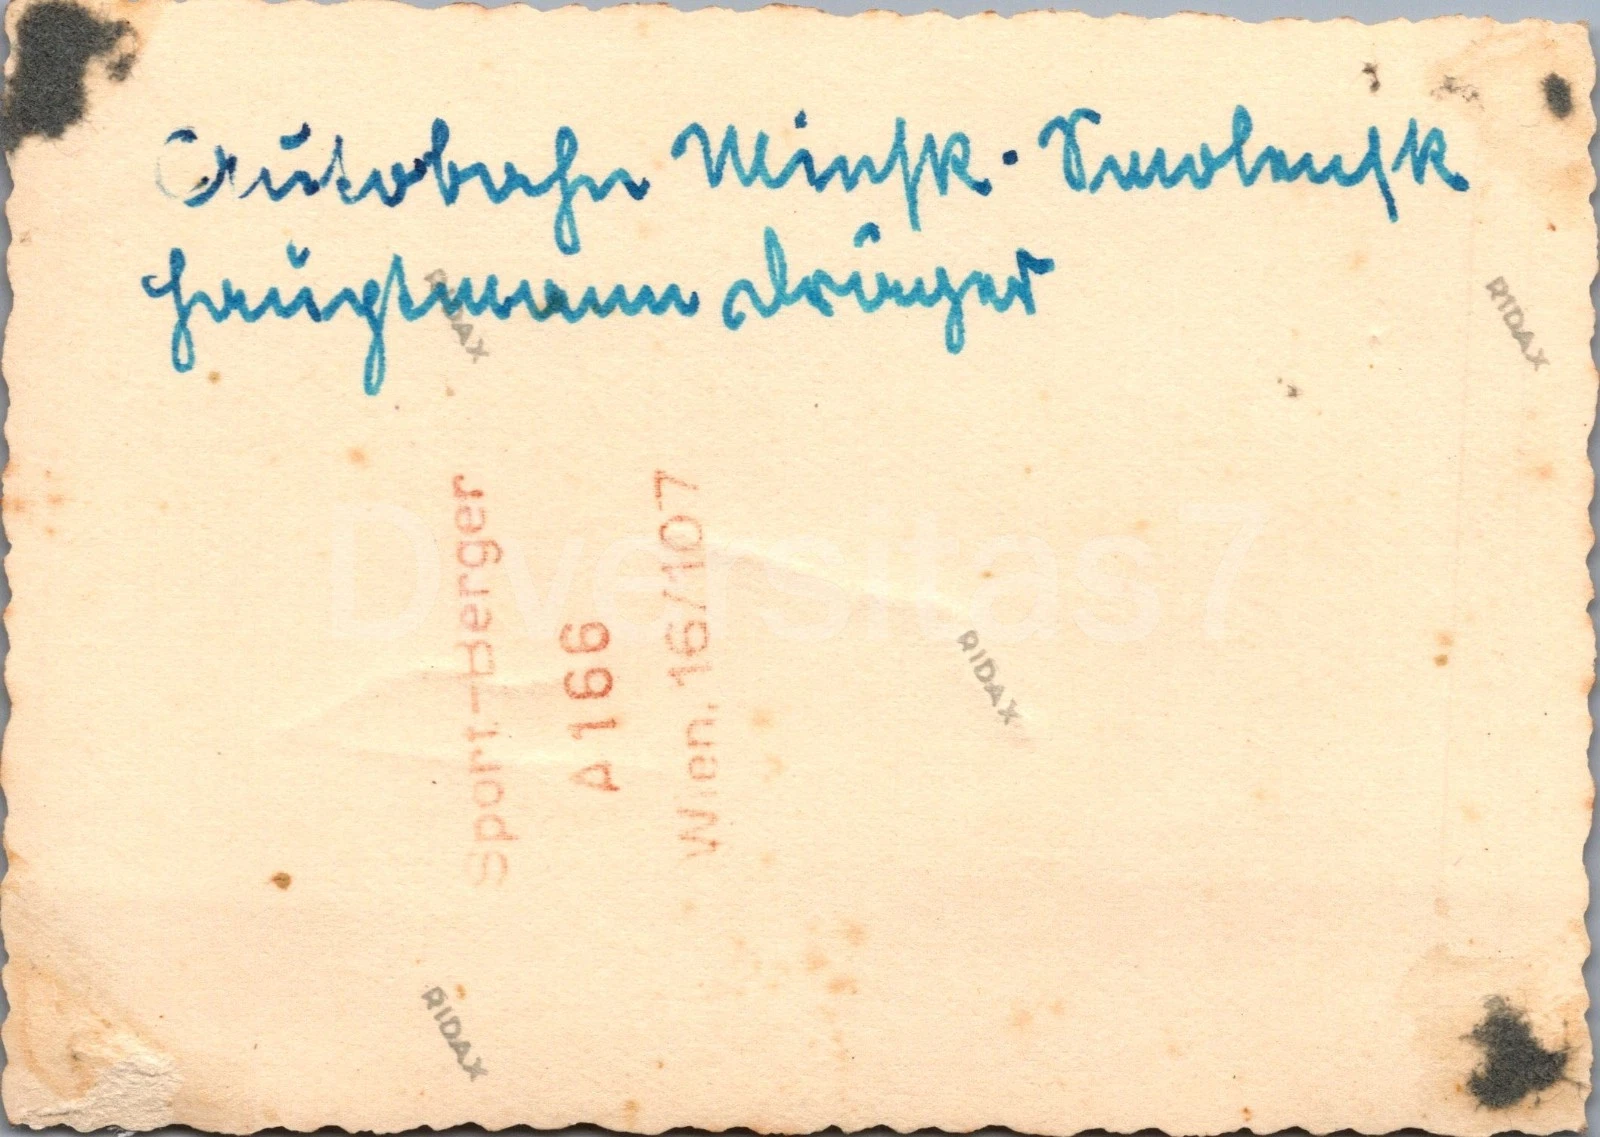 Autobahn Minsk-Smolensk
Hauptmann Dräger
RIDAX
RIDAX
Sport-Berger
A 166
Wien, 16/107
Diversitas7
RIDAX
RIDAX